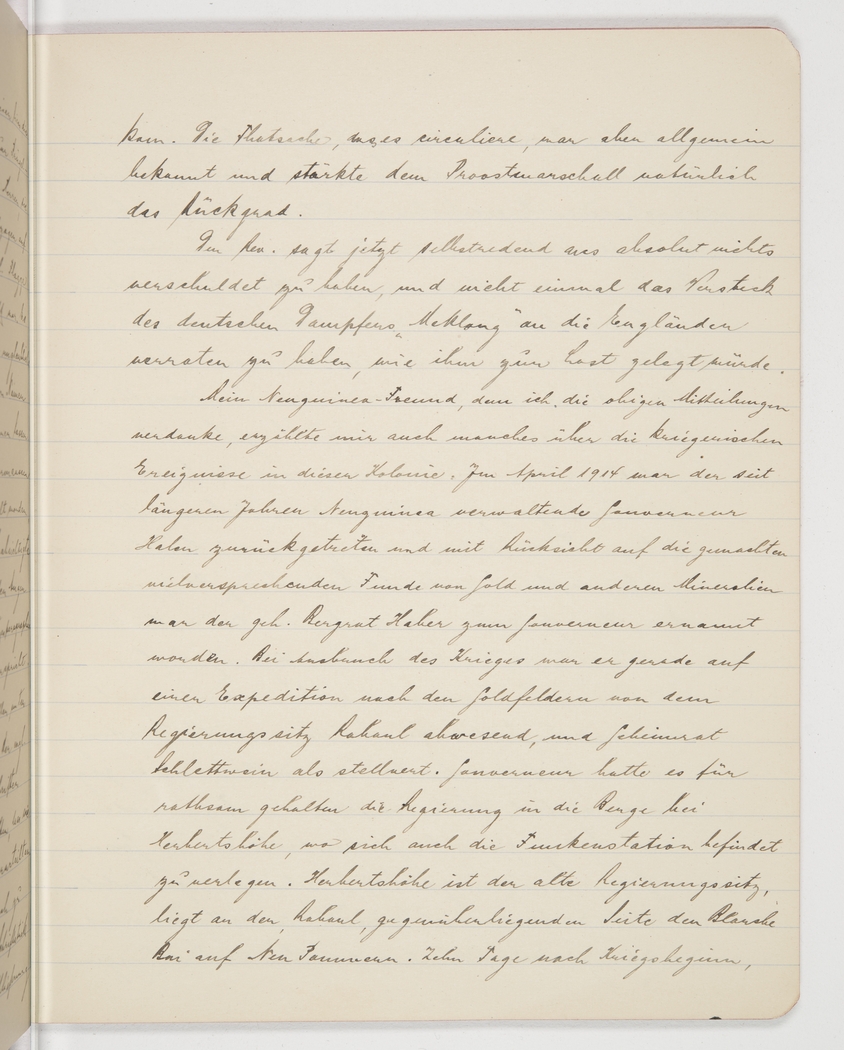 kam. Die Thatsache, dass es circuliere, war aber allgemein
bekannt und stärkte dem Proostmarschall natürlich
das Rückgrad.
Der Rev. sagt jetzt selbstredend aus absolut nichts
verschuldet zu haben, und nicht einmal das Versteck
des deutschen Dampfers „Meklong" an die Engländer
verraten zu haben, wie ihm zur Last gelegt würde.
Mein Neuguinea-Freund, dem ich die obigen Mittheilungen
verdanke, erzählte mir auch manches über die kriegerischen
Ereignisse in dieser Kolonie. Im April 1914 war der seit
längeren Jahren Neuguinea verwaltende Gouverneur
Hahn zurückgetreten und mit Rücksicht auf die gemachten
vielversprechenden Funde von Gold und anderen Mineralien
war der geh. Bergrat Haber zum Gouverneur ernannt
worden. Bei Ausbruch des Krieges war er gerade auf
einer Expedition nach den Goldfeldern von dem
Regierungssitz Rabaul abwesend, und Geheimrat
Schlettwein als stellvert. Gouverneur hatte es für
rathsam gehalten die Regierung in die Berge bei
Herbertshöhe, wo sich auch die Funkenstation befindet
zu verlegen. Herbertshöhe ist der alte Regierungssitz,
liegt an der, Rabaul, gegenüberliegenden Seite der Blanche
Bai auf Neu Pommern. Zehn Tage nach Kriegsbeginn,